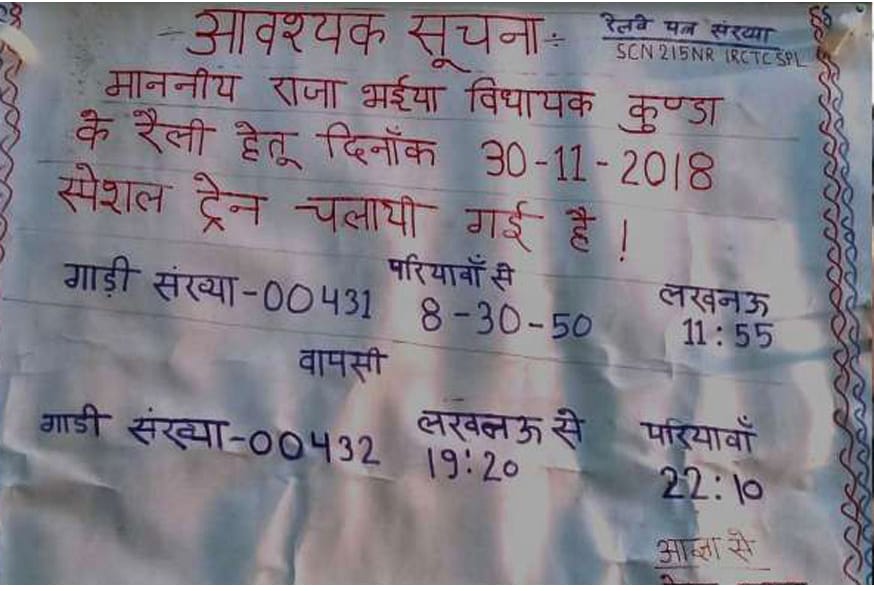 -: आवश्यक सूचना :-
रेलवे पत्र संख्या
SCN 215NR IRCTC SPL
माननीय राजा भईया विधायक कुण्डा
के रैली हेतू दिनाँक 30-11-2018
स्पेशल ट्रेन चलायी गई है !
गाड़ी संख्या-00431 परियावाँ से लखनऊ
8-30-50 11:55
वापसी
गाडी संख्या-00432 लखनऊ से परियावाँ
19:20 22:10
आज्ञा से